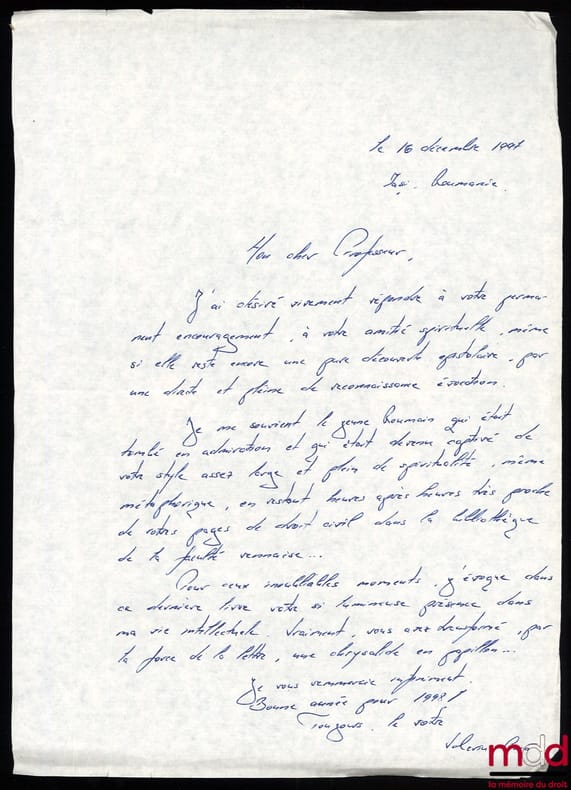 le 16 décembre 1997
Iași. Roumanie.
Mon cher Professeur,
J'ai désiré vivement répondre à votre perma-
nent encouragement, à votre amitié spirituelle, même
si elle reste encore une pure découverte épistolaire, par
une droite et pleine de reconnaissance évocation.
Je me souvient le jeune Roumain qui était
tombé en admiration et qui était devenu captivé de
votre style assez large et plein de spiritualité, même
métaphorique, en restant heures après heures très proche
de votres pages de droit civil dans la bibliothèque
de la faculté rennaise...
Pour ceux inoubliables moments, j'évoque dans
ce dernière livre votre si lumineuse présence dans
ma vie intellectuelle. Vraiment, vous avez transformé, par
la force de la lettre, une chrysalide en papillon...
Je vous remmercie infiniment.
Bonne année pour 1998!
Toujours, le votre
mdd
la mémoire du droit